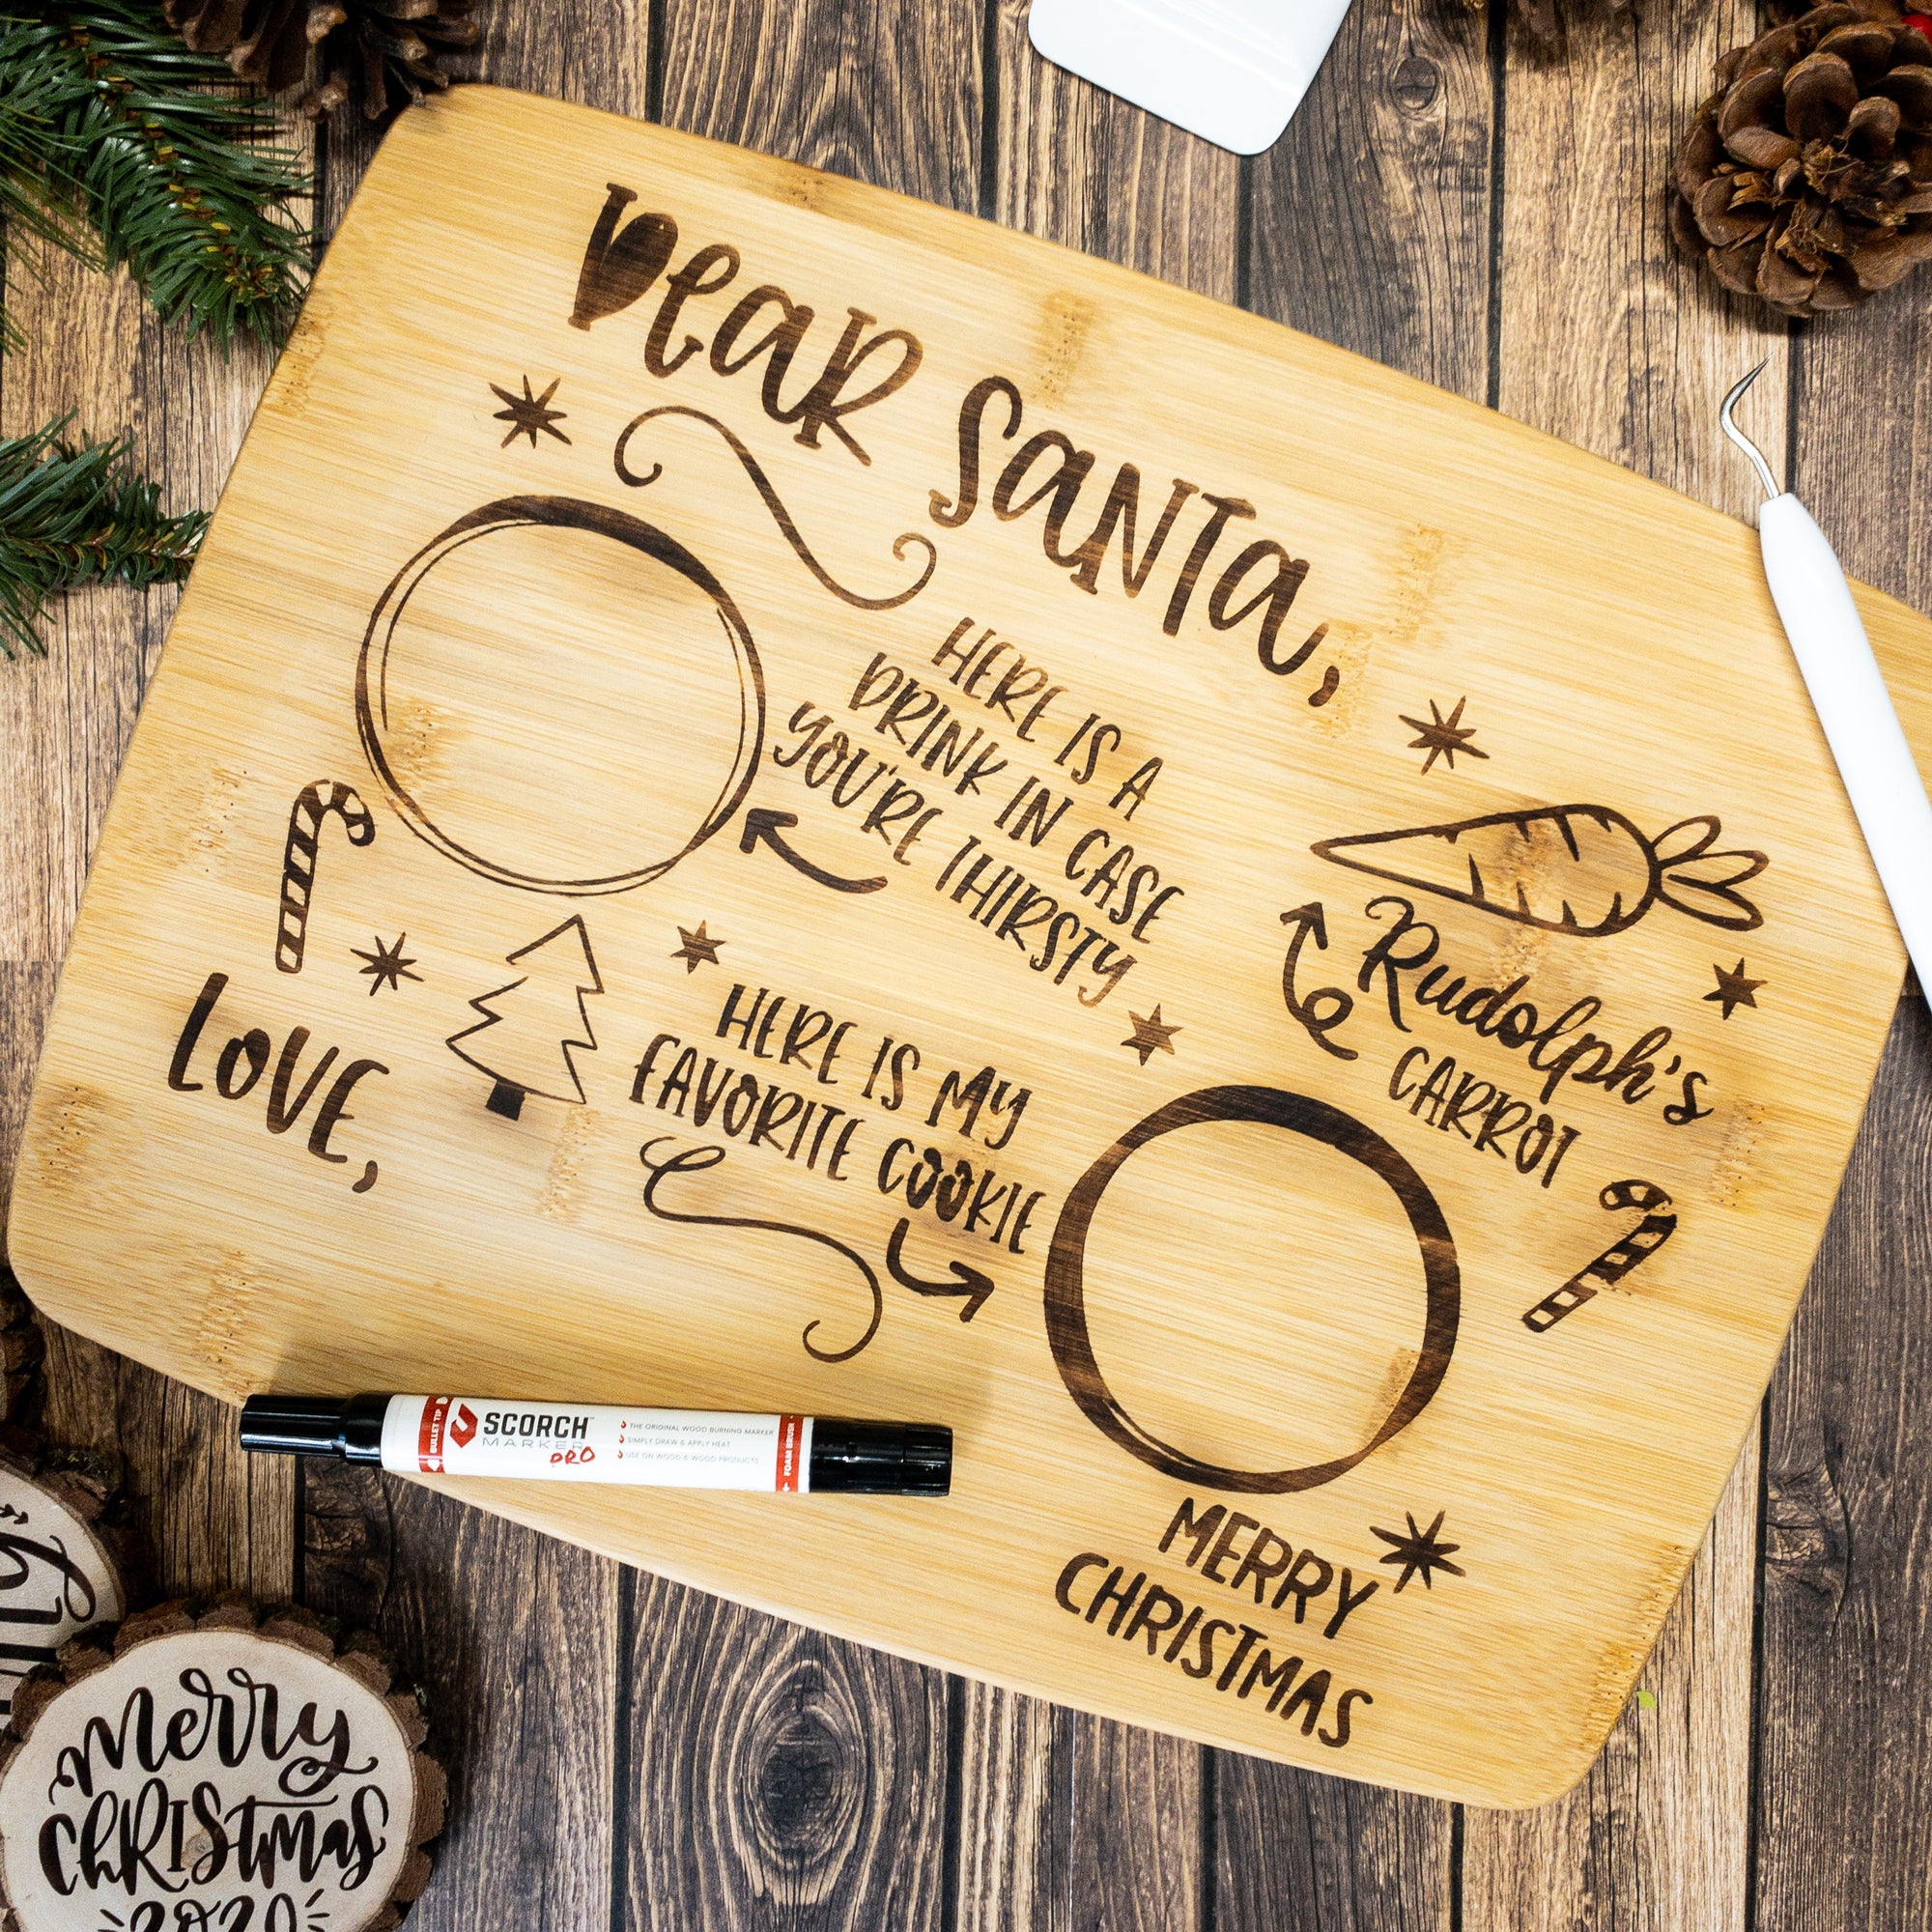 DEAR SANTA,
HERE IS A
DRINK IN CASE
YOU'RE THIRSTY
Rudolph's
CARROT
HERE IS MY
FAVORITE COOKIE
LOVE,
MERRY
CHRISTMAS
BULLET TIP
SCORCH™
MARKER
PRO
THE ORIGINAL WOOD BURNING MARKER
SIMPLY DRAW & APPLY HEAT
USE ON WOOD & WOOD PRODUCTS
FOAM BRUSH
Merry
Christmas
2020